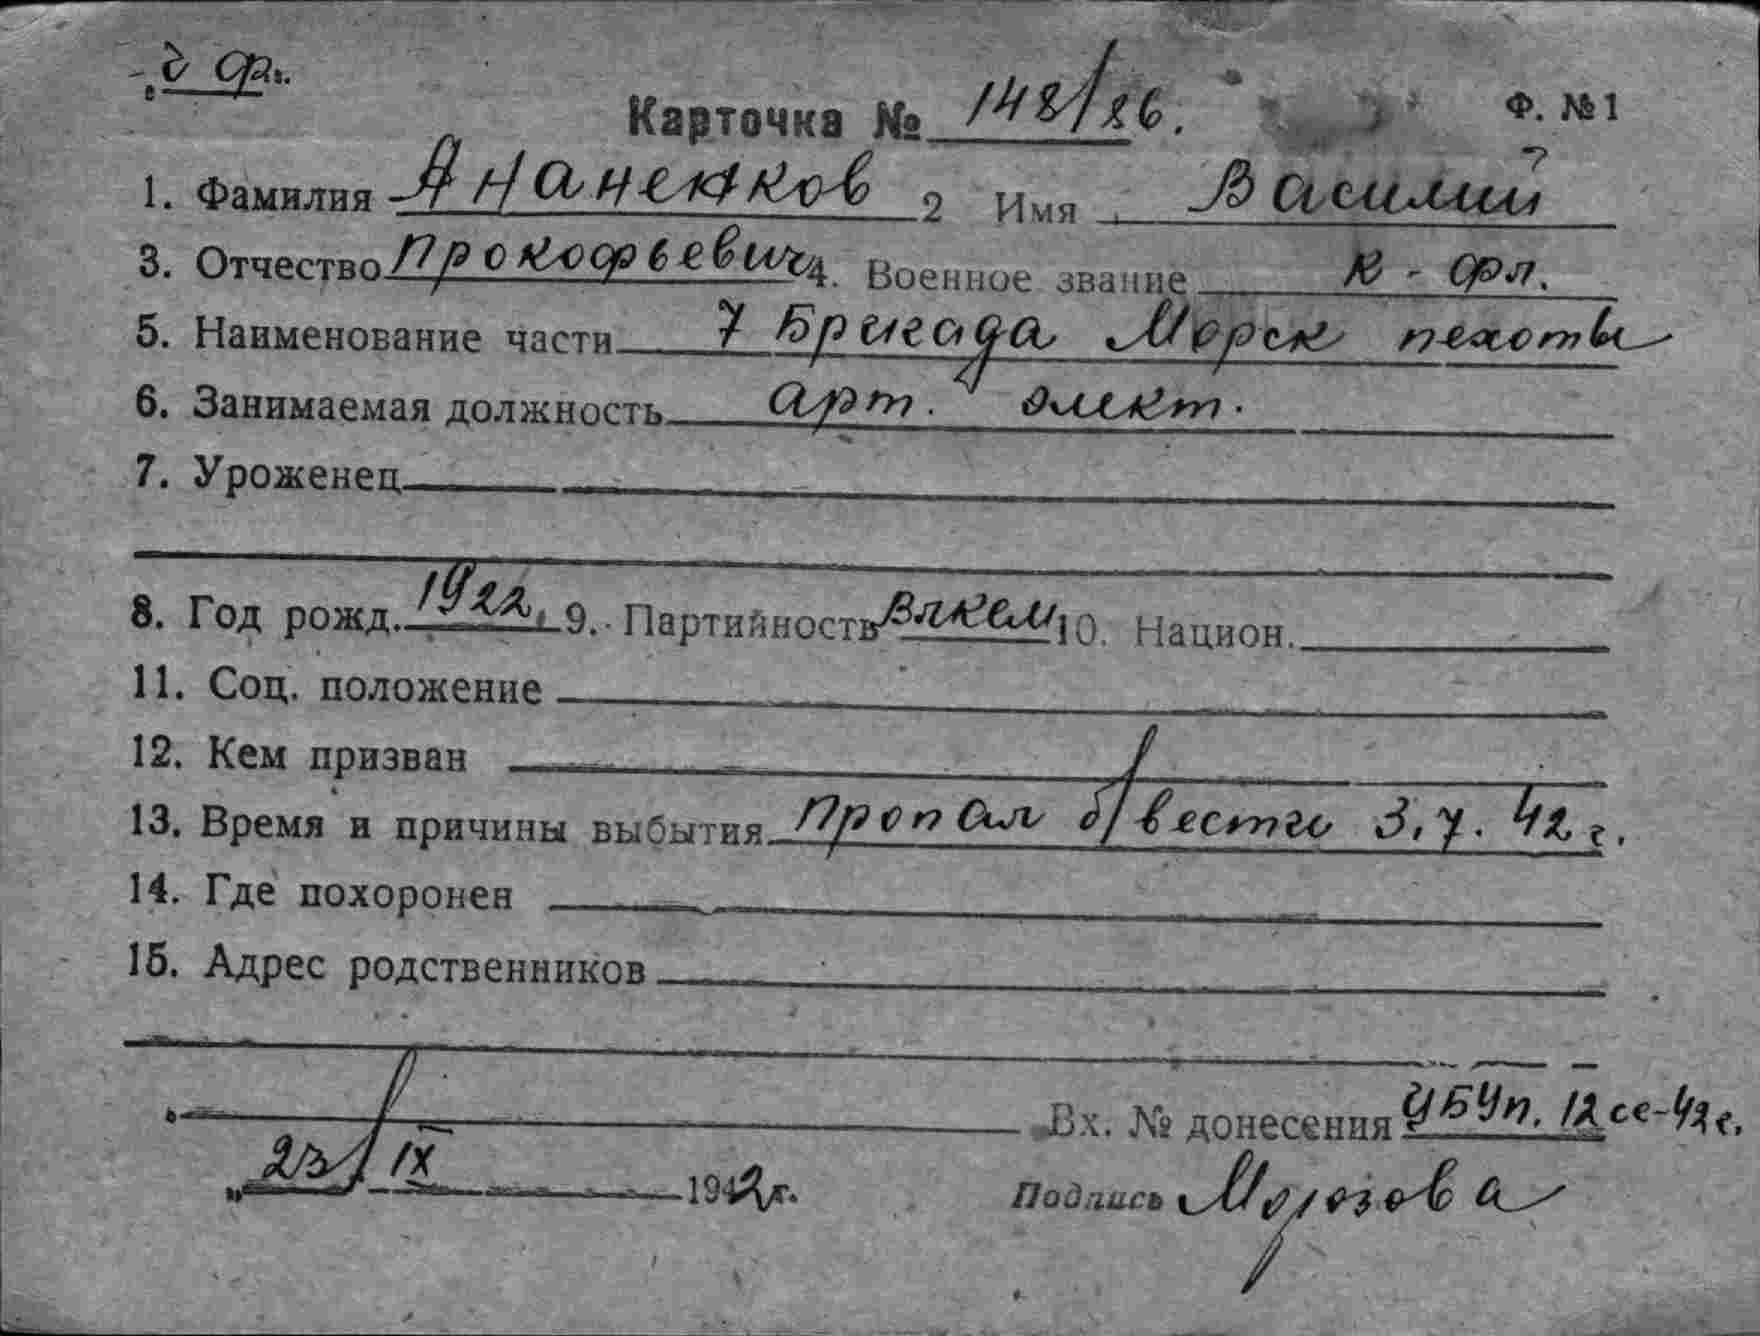 ч ф.
Карточка № 148/86. Ф. №1
1. Фамилия Ананенков 2 Имя Василий
3. Отчество Прокофьевич 4. Военное звание к-фл.
5. Наименование части 7 Бригада Морск пехоты
6. Занимаемая должность арт. элект.
7. Уроженец
8. Год рожд. 1922, 9. Партийность влксм 10. Национ.
11. Соц. положение
12. Кем призван
13. Время и причины выбытия Пропал б/вести 3.7.42 г.
14. Где похоронен
15. Адрес родственников
Вх. № донесения УБУп. 12сс-42г.
„23/IX 1942г. Подпись Морозова